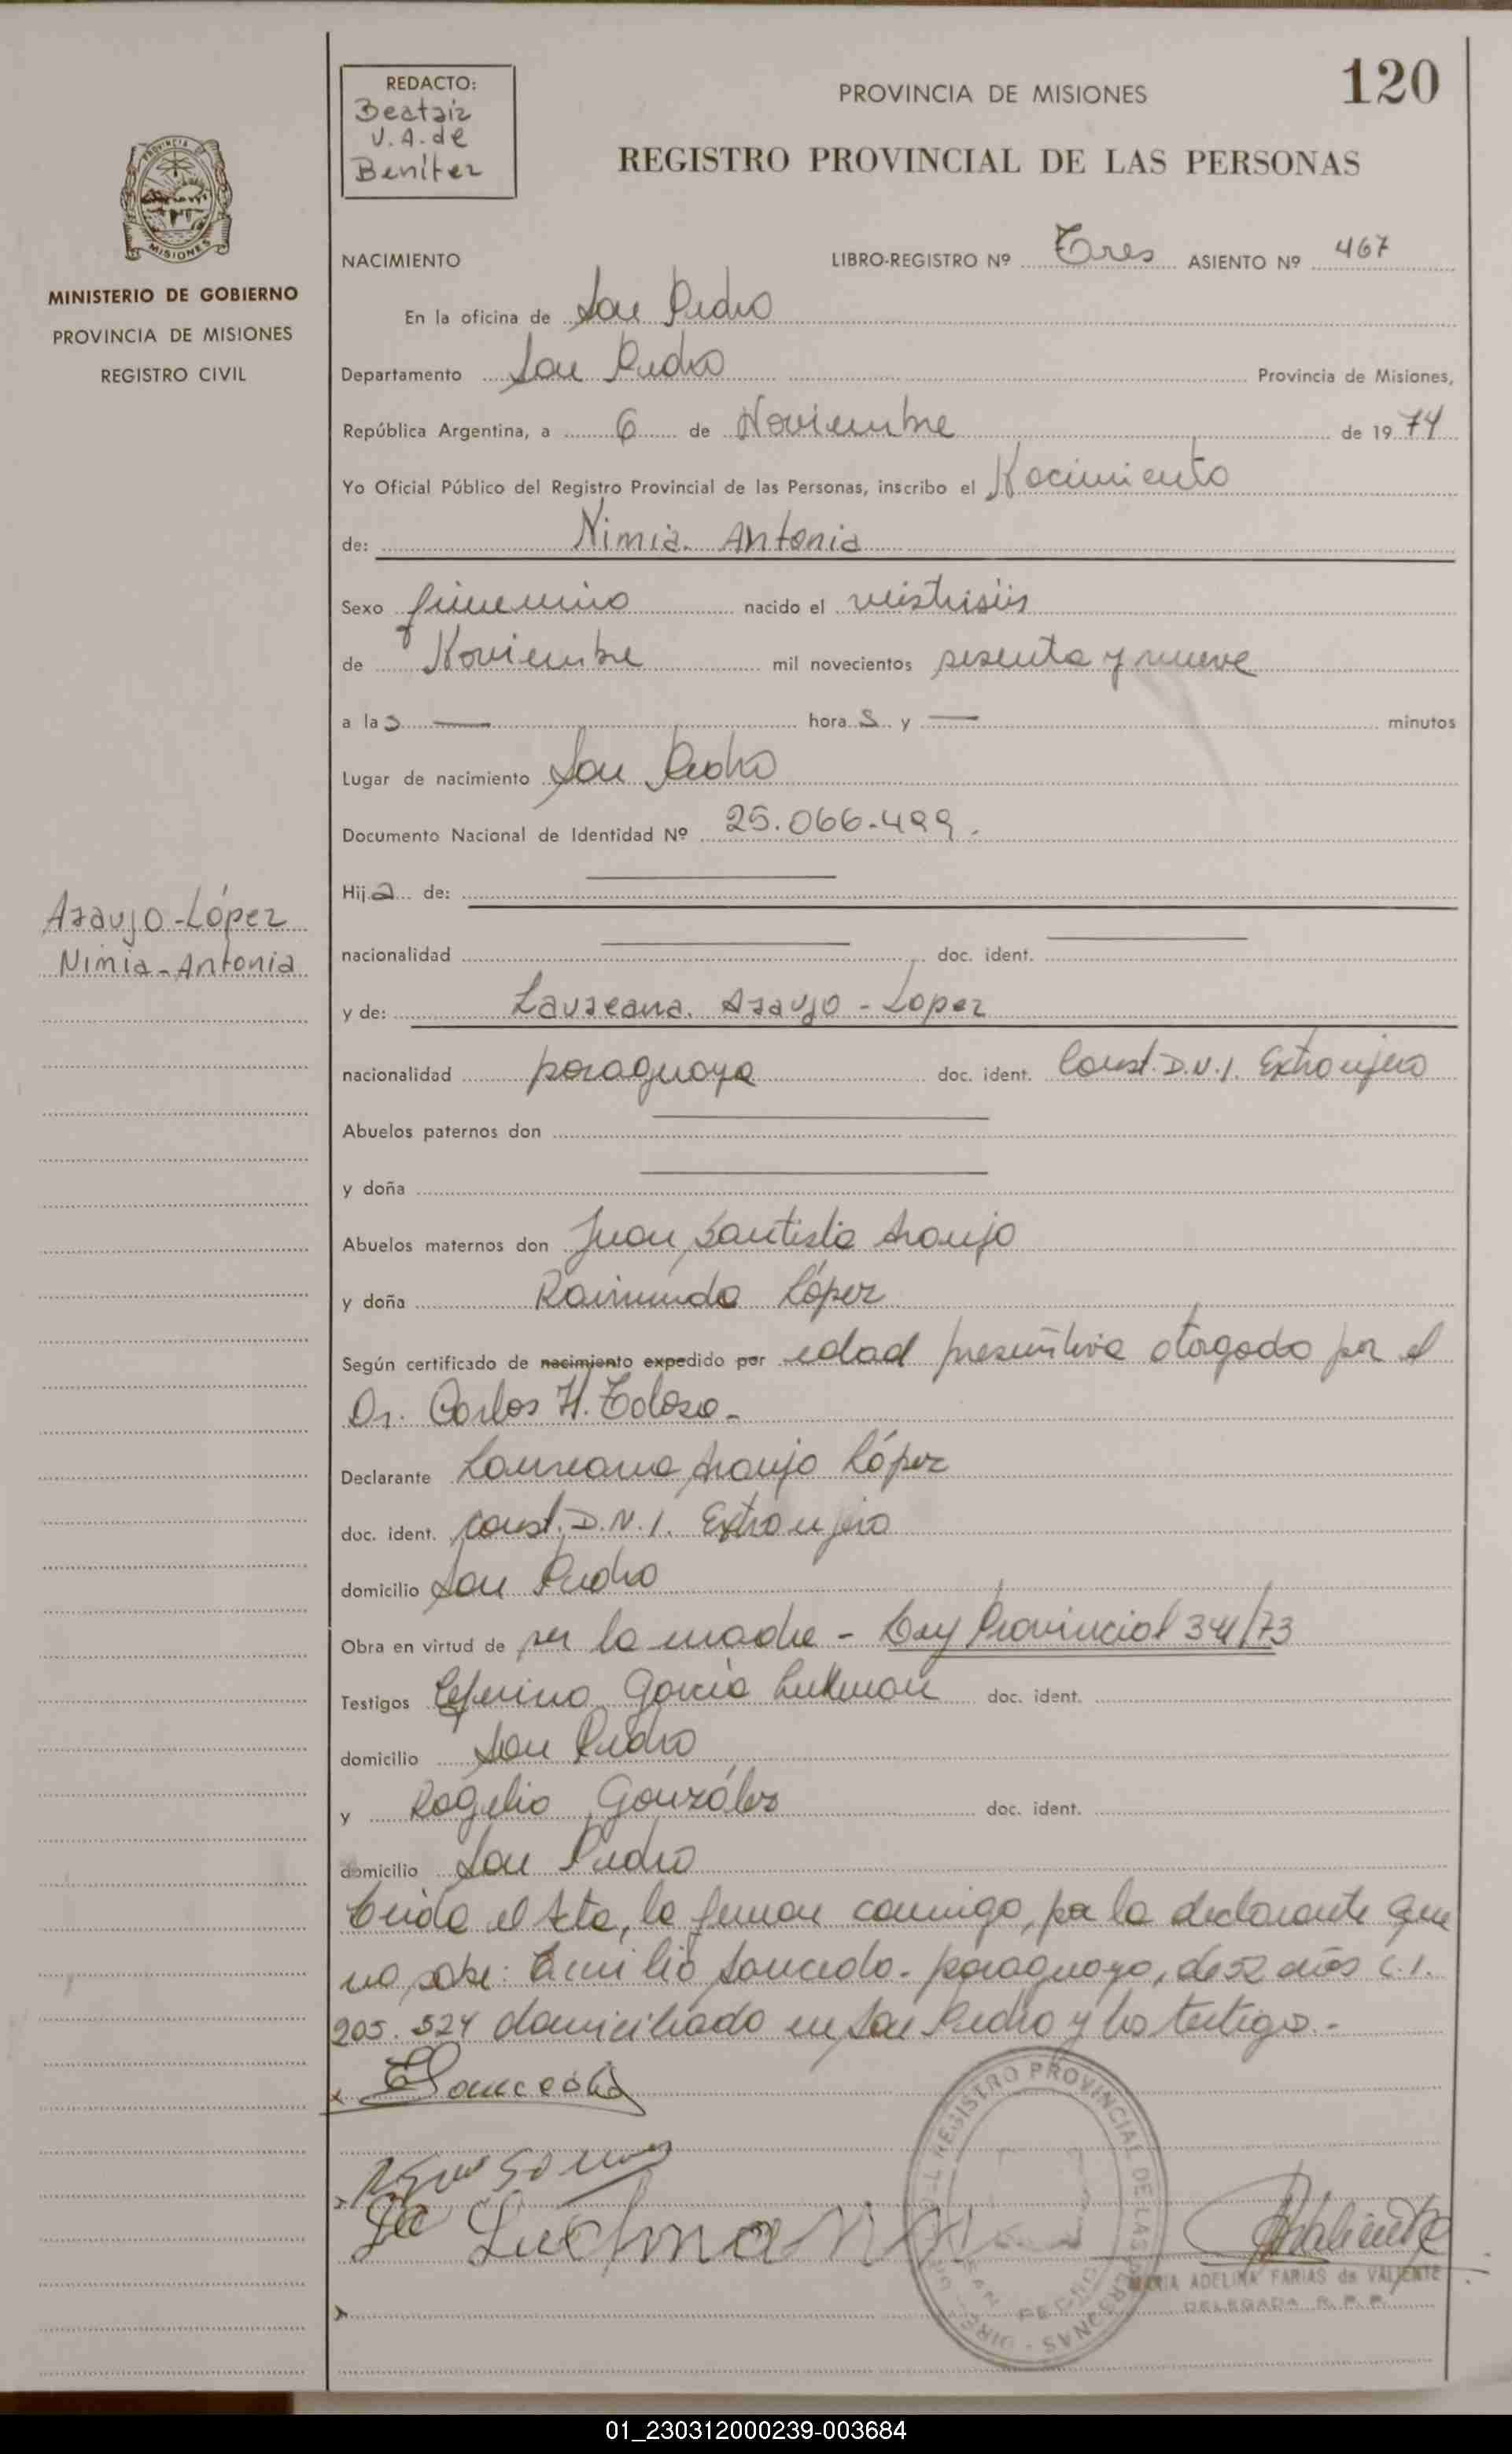 120
REDACTO:
Beatriz
V. A. de
Benítez
PROVINCIA DE MISIONES
REGISTRO PROVINCIAL DE LAS PERSONAS
PROVINCIA DE
MISIONES
MINISTERIO DE GOBIERNO
PROVINCIA DE MISIONES
REGISTRO CIVIL
Araujo-López
Nimia-Antonia
NACIMIENTO LIBRO-REGISTRO Nº Tres ASIENTO Nº 467
En la oficina de San Pedro
Departamento San Pedro Provincia de Misiones,
República Argentina, a 6 de Noviembre de 1974
Yo Oficial Público del Registro Provincial de las Personas, inscribo el Nacimiento
de: Nimia. Antonia
Sexo femenino nacido el
de Noviembre mil novecientos sesenta y nueve
a las — hora S y — minutos
Lugar de nacimiento San Pedro
Documento Nacional de Identidad Nº 25.066.499.
Hija de:
nacionalidad doc. ident.
y de: Laureana. Araujo - Lopez
nacionalidad paraguaya doc. ident. Const. D.N.I. Extranjero
Abuelos paternos don
y doña
Abuelos maternos don Juan Bautista Araujo
y doña Raimunda López
Según certificado de nacimiento expedido por edad presuntiva otorgado por el
Dr. Carlos H. Toloza-
Declarante Laureana Araujo López
doc. ident. Const. D.N.I. Extranjero
domicilio San Pedro
Obra en virtud de ser la madre - Ley Provincial 341/73
Testigos Ceferino García doc. ident.
domicilio San Pedro
y Rogelio González doc. ident.
domicilio San Pedro
Leida el Acta, la firman conmigo, por la declarante que
no sabe: Emilio Saucedo - paraguayo, de 52 años C.I.
205.524 domiciliado en San Pedro y los testigos.-
REGISTRO PROVINCIAL DE LAS PERSONAS
SAN PEDRO
MARIA ADELINA FARIAS de VALIENTE
DELEGADA R. P. P.
01_230312000239-003684